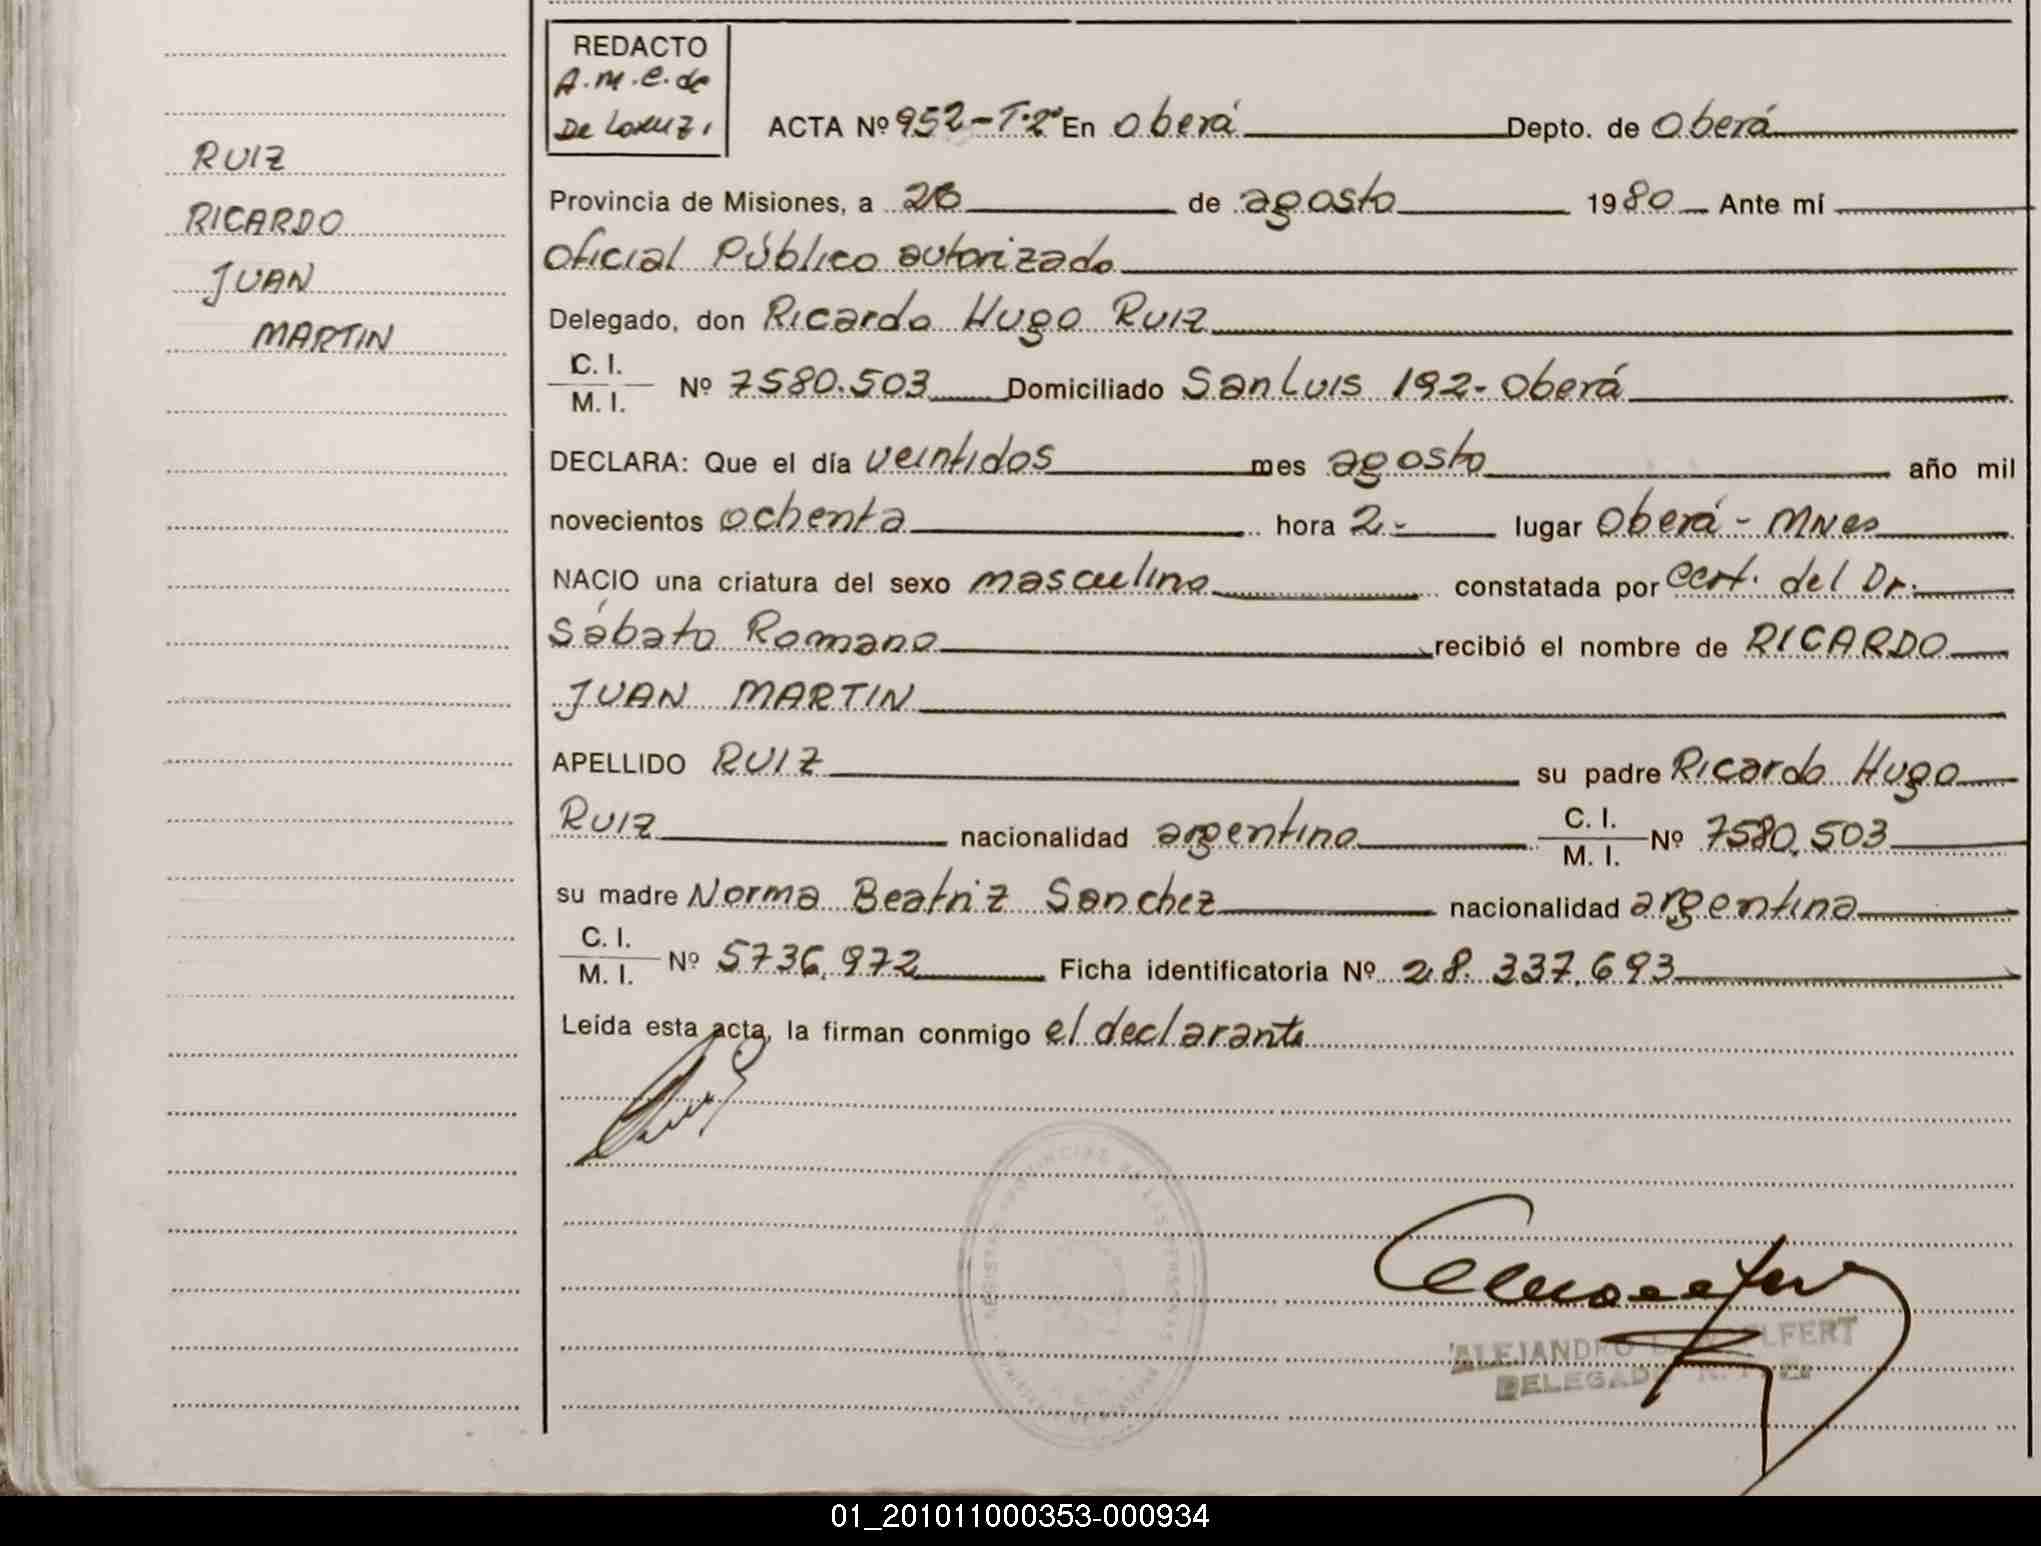 REDACTO
A.M.E. de
De Lorenzi
ACTA Nº 952-T.2º En Oberá Depto. de Oberá
RUIZ
RICARDO
JUAN
MARTIN
Provincia de Misiones, a 26 de agosto 1980 Ante mí
Oficial Público autorizado
Delegado, don Ricardo Hugo Ruiz
C. I.
M. I. Nº 7580.503 Domiciliado San Luis 192-Oberá
DECLARA: Que el día veintidos mes agosto año mil
novecientos ochenta hora 2.- lugar Oberá - Mnes
NACIO una criatura del sexo masculino constatada por cert. del Dr.
Sábato Romano recibió el nombre de RICARDO
JUAN MARTIN
APELLIDO RUIZ su padre Ricardo Hugo
Ruiz nacionalidad argentino C. I.
M. I. Nº 7580.503
su madre Norma Beatriz Sanchez nacionalidad argentina
C. I.
M. I. Nº 5736.972 Ficha identificatoria Nº 28.337.693
Leída esta acta, la firman conmigo el declarante
ALEJANDRO
DELEGADO
01_201011000353-000934